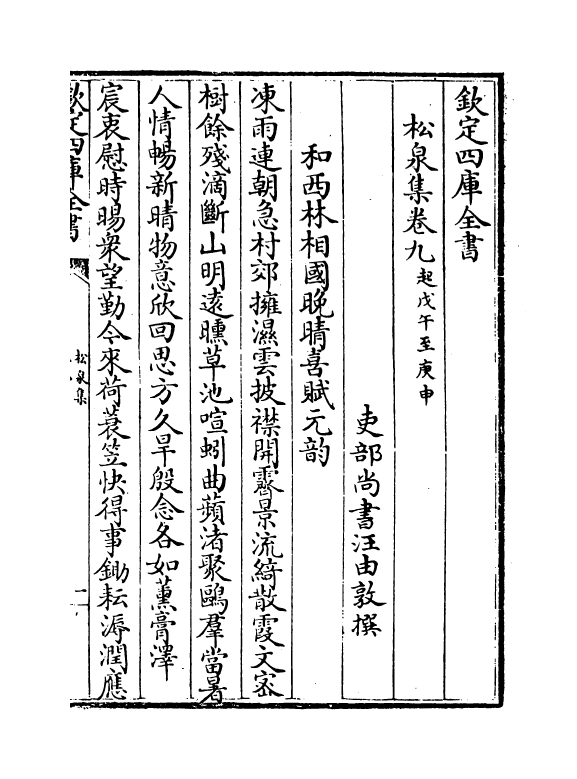 欽定四庫全書
松泉集卷九起戊午至庚申
吏部尚書汪由敦撰
和西林相國晚晴喜賦元韵
凍雨連朝急村郊擁濕雲披襟開霽景流綺散霞文密
樹餘殘滴斷山明遠曛草池喧蚓曲蘋渚聚鷗羣當暑
人情暢新晴物意欣回思方久旱殷念各如薰膏澤
宸衷慰時暘衆望勤今來荷蓑笠快得事鋤耘溽潤應
欽定四庫全書
松泉集